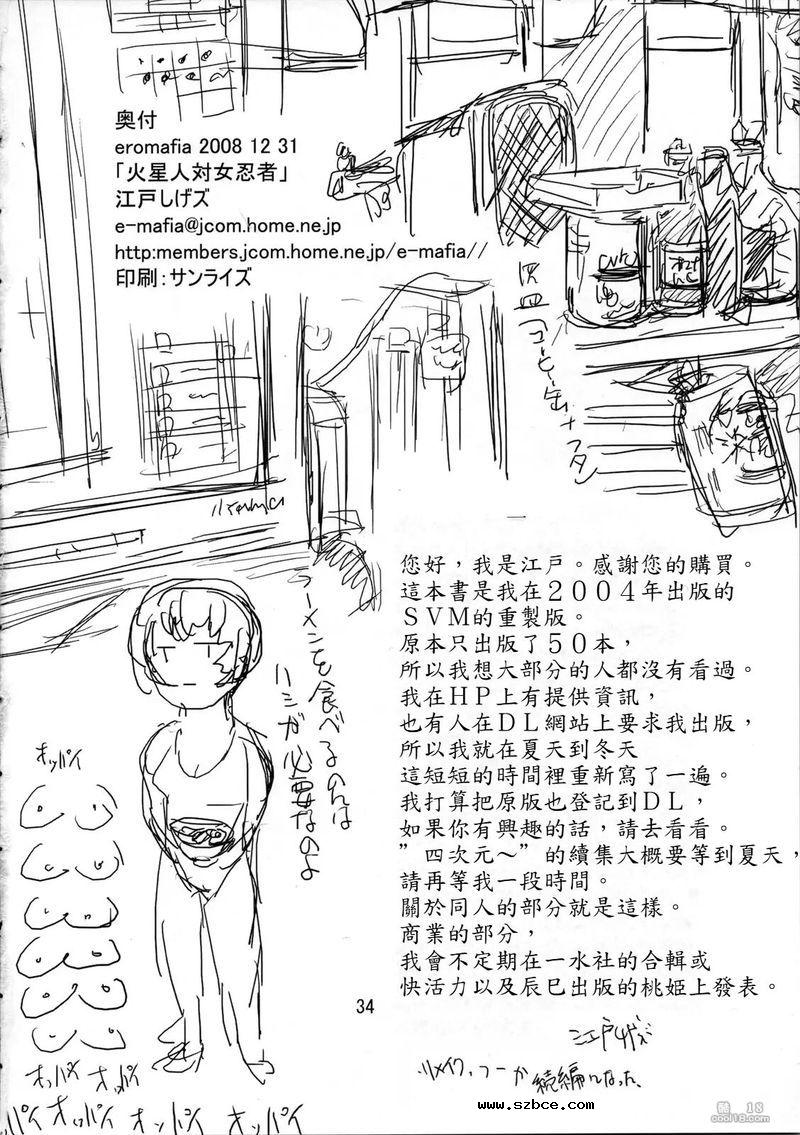 奥付
eromafia 2008 12 31
「火星人対女忍者」
江戸しげズ
e-mafia@jcom.home.ne.jp
http:members.jcom.home.ne.jp/e-mafia//
印刷：サンライズ
ラーメンを食べるのんは
ハシが必要なのよ
オッパイ
您好，我是江戸。感謝您的購買。
這本書是我在２００４年出版的
ＳＶＭ的重製版。
原本只出版了５０本，
所以我想大部分的人都沒有看過。
我在ＨＰ上有提供資訊，
也有人在ＤＬ網站上要求我出版，
所以我就在夏天到冬天
這短短的時間裡重新寫了一遍。
我打算把原版也登記到ＤＬ，
如果你有興趣的話，請去看看。
”四次元～”的續集大概要等到夏天，
請再等我一段時間。
關於同人的部分就是這樣。
商業的部分，
我會不定期在一水社的合輯或
快活力以及辰巳出版的桃姫上發表。
34
江戸しげズ
リメイク、つーか 続編になった、
オッパイ オッパイ
オッパイ オッパイ オッパイ オッパイ
www.szbce.com
酷 18
cool18.com